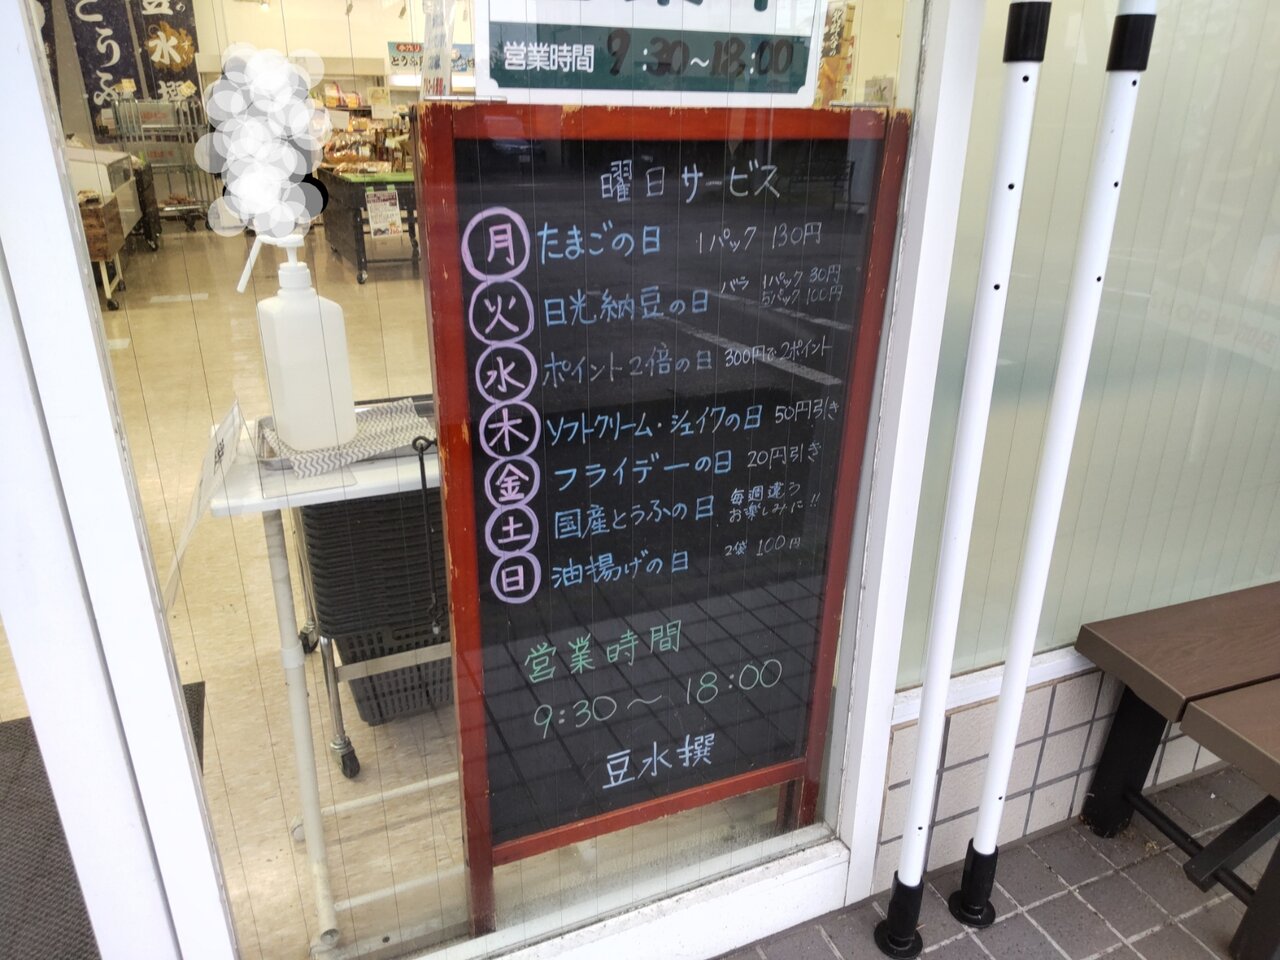 とうふ
豆水撰
営業時間 9:30～18:00
曜日サービス
月 たまごの日 1パック 130円
火 日光納豆の日 バラ 1パック 30円
5パック 100円
水 ポイント2倍の日 300円で2ポイント
木 ソフトクリーム・シェイクの日 50円引き
金 フライデーの日 20円引き
土 国産とうふの日 毎週違う
お楽しみに!!
日 油揚げの日 2袋 100円
営業時間
9:30～18:00
豆水撰